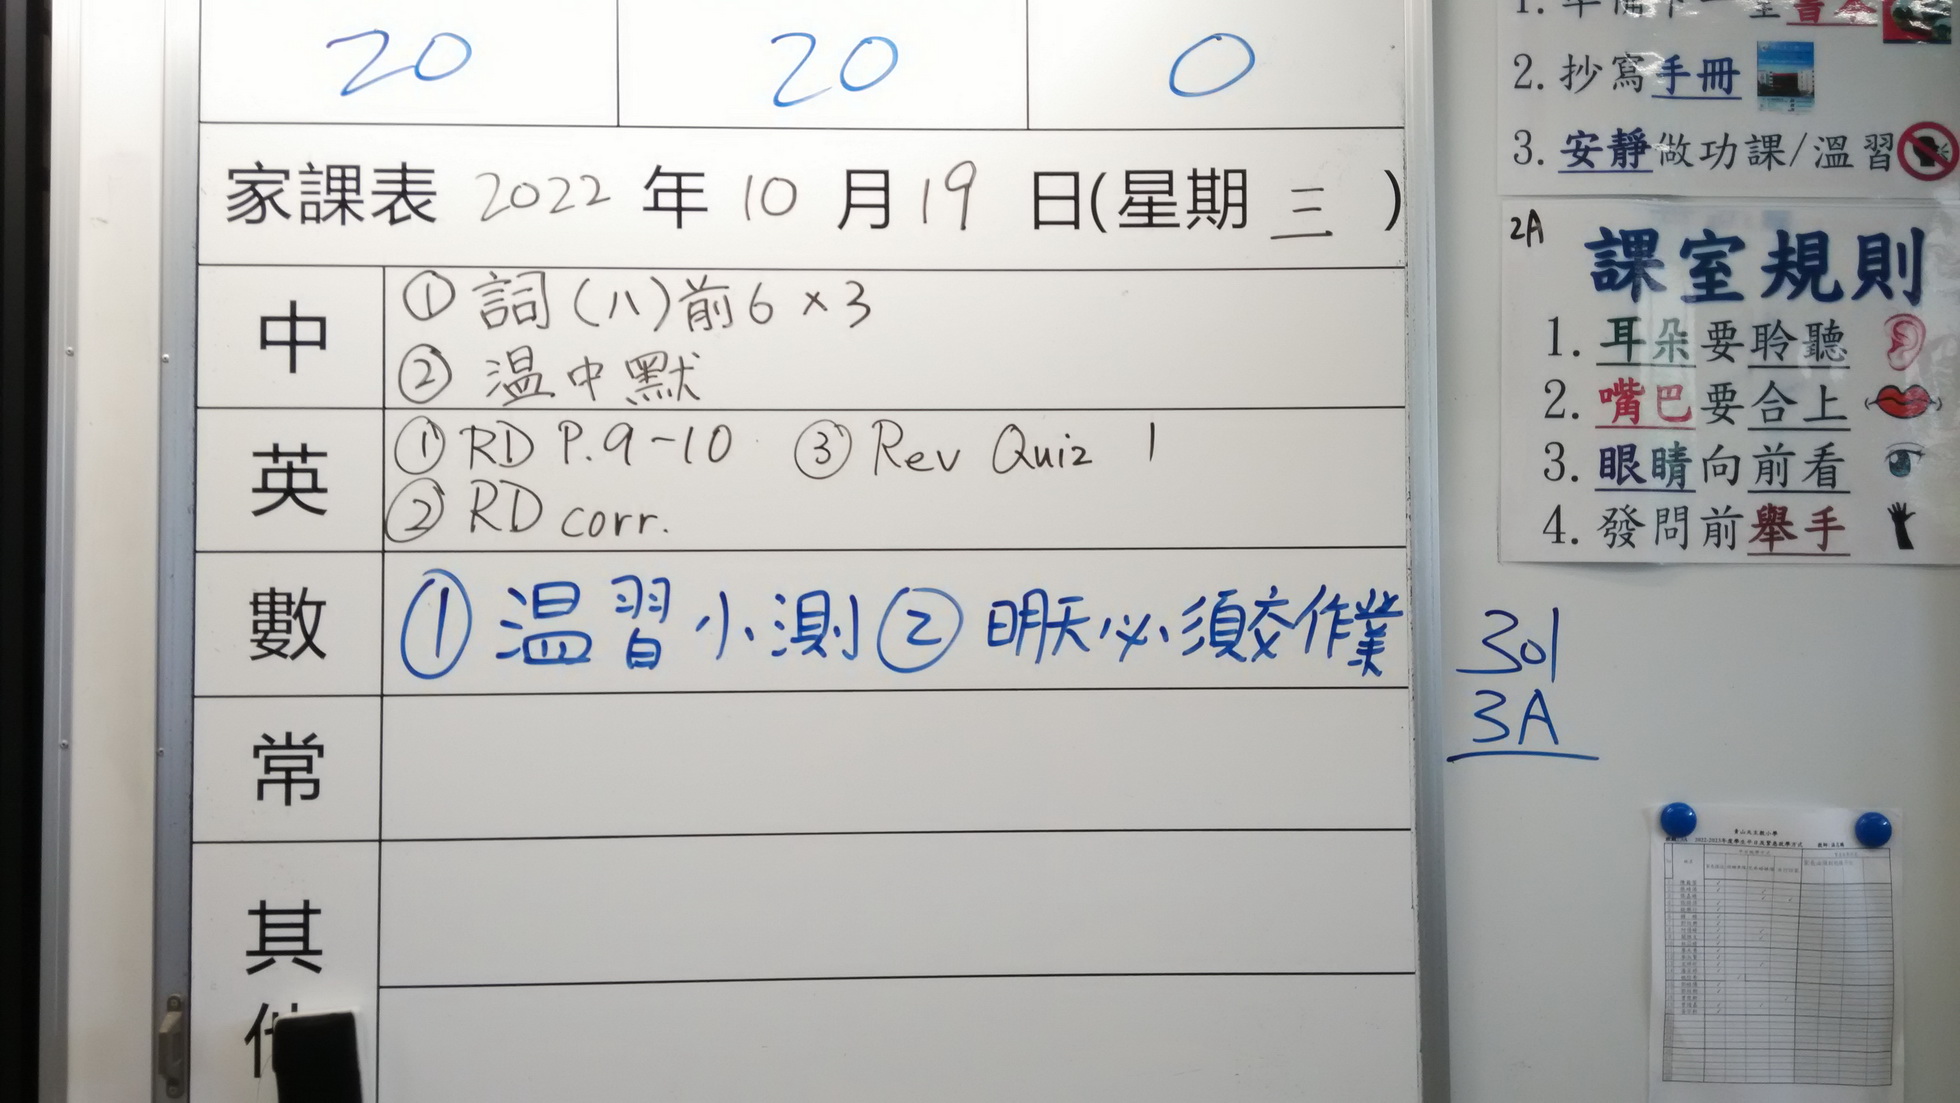 20 20 0
家課表 2022 年 10 月 19 日(星期 三 )
中
① 詞 (八) 前6 × 3
② 溫中默
英
① RD P.9-10 ③ Rev Quiz 1
② RD corr.
數
① 溫習小測 ② 明天必須交作業
常
其
2. 抄寫手冊
3. 安靜做功課/溫習
2A
課室規則
1. 耳朵要聆聽
2. 嘴巴要合上
3. 眼睛向前看
4. 發問前舉手
301
3A